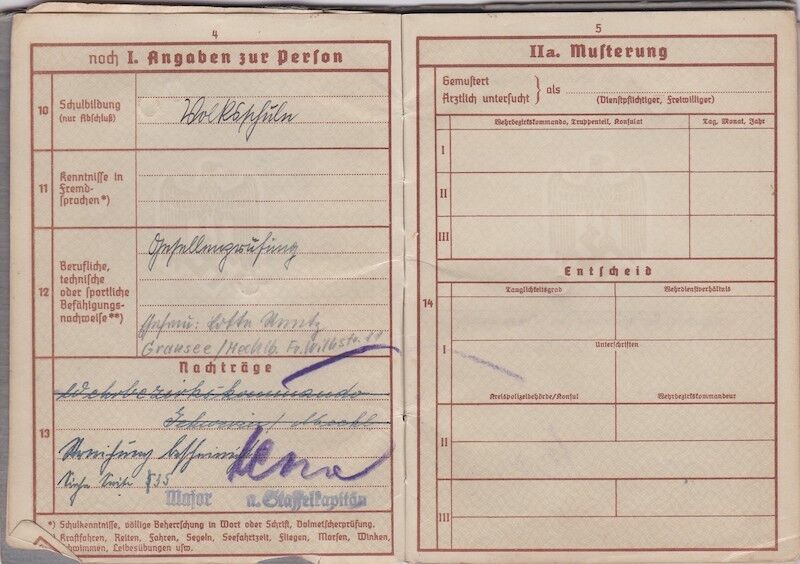 4
noch I. Angaben zur Person
10
Schulbildung
(nur Abschluß)
Volksschule
11
Kenntnisse in
Fremd-
sprachen*)
12
Berufliche,
technische
oder sportliche
Befähigungs-
nachweise**)
Gesellenprüfung
Ehefrau: Lotte
Gransee/Mecklb. Fr. Wilhstr.
Nachträge
13
Wehrbezirkskommando
Schwerin/Meckl.
Streichung bescheinigt
Siehe Seite 35
Major u. Staffelkapitän
*) Schulkenntnisse, völlige Beherrschung in Wort oder Schrift, Dolmetscherprüfung.
Kraftfahren, Reiten, Fahren, Segeln, Seefahrtzeit, Fliegen, Morsen, Winken,
Schwimmen, Leibesübungen usw.
5
IIa. Musterung
Gemustert
Ärztlich untersucht } als
(Dienstpflichtiger, Freiwilliger)
Wehrbezirkskommando, Truppenteil, Konsulat
Tag, Monat, Jahr
I
II
III
Entscheid
14
Tauglichkeitsgrad
Wehrdienstverhältnis
I
Unterschriften
Kreispolizeibehörde/Konsul
Wehrbezirkskommandeur
II
III